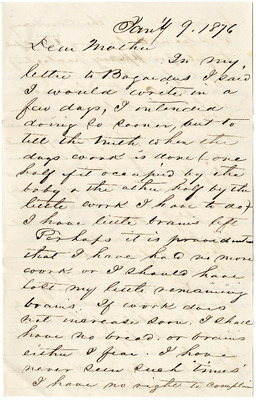 Jan'y 9. 1876
Dear Mother
In my
letter to Bogardus I said
I would write in a
few days, I intended
doing so sooner, but to
tell the truth when the
days work is done (one
half of it occupied by the
baby & the other half by the
little work I have to do)
I have little brains left
Perhaps it is providential
that I have had no more
work or I should have
lost my little remaining
brains. If work does
not increase soon. I shall
have no bread or brains
either I fear. I have
never seen such times
I have no right to complain